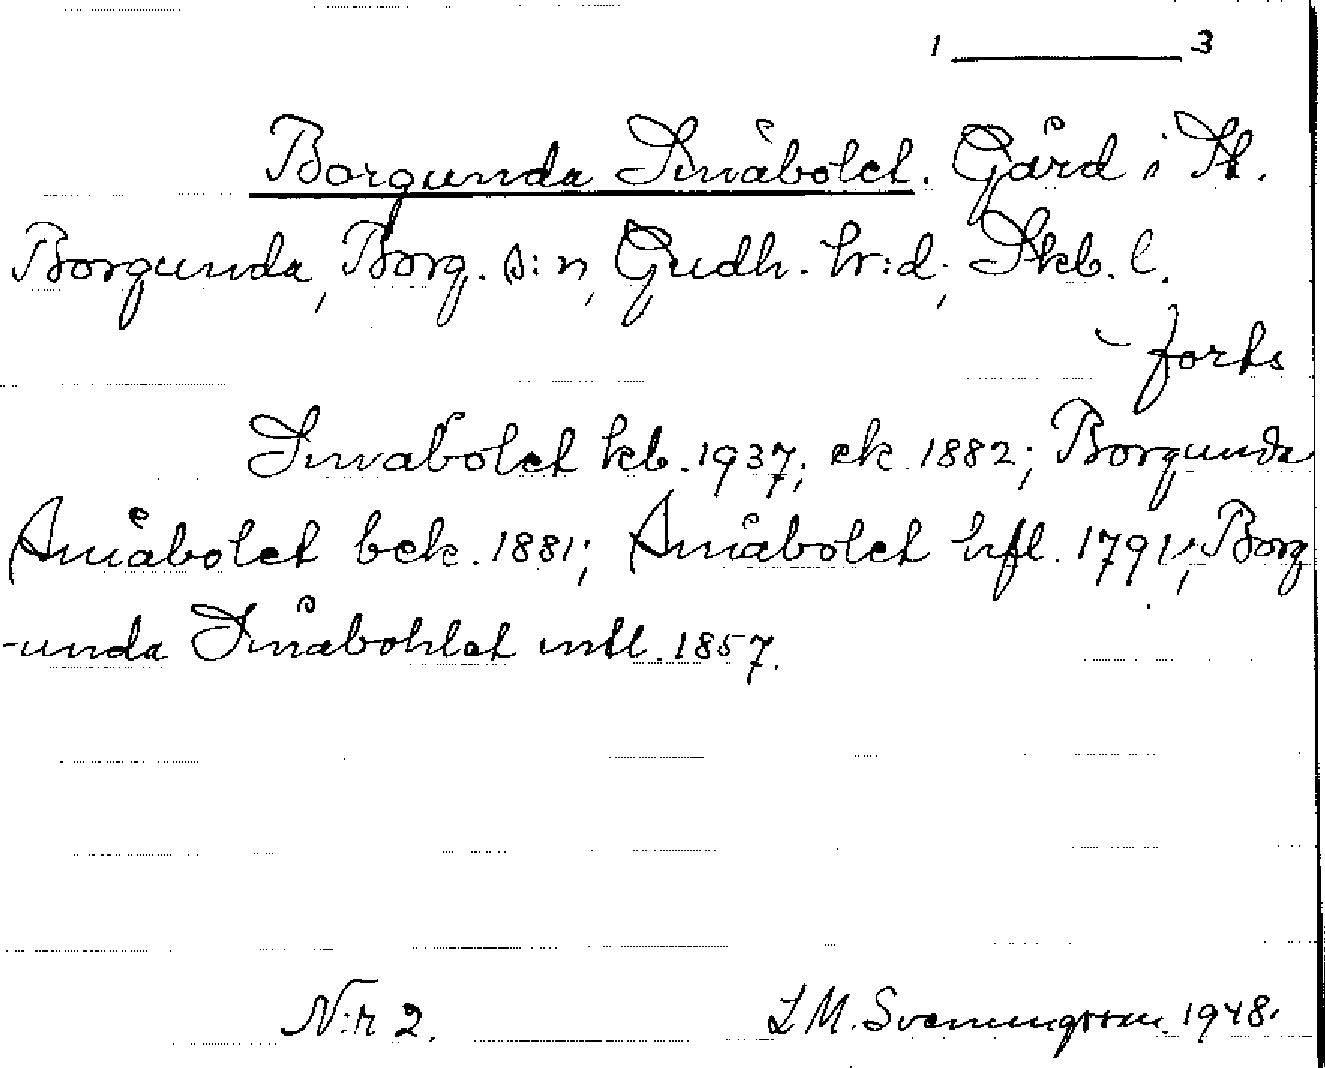 1 ——— 3
Borgunda Småbolet. Gård i St.
Borgunda, Borg. s:n, Gudh. hr:d, Skb. l.
– forts
Småbolet kb. 1937, ek 1882; Borgunda
Småbolet bek. 1881; Småbolet hfl. 1791; Borg
-unda Småbohlet mtl. 1857.
N:r 2. L M. Svenungsson 1948.